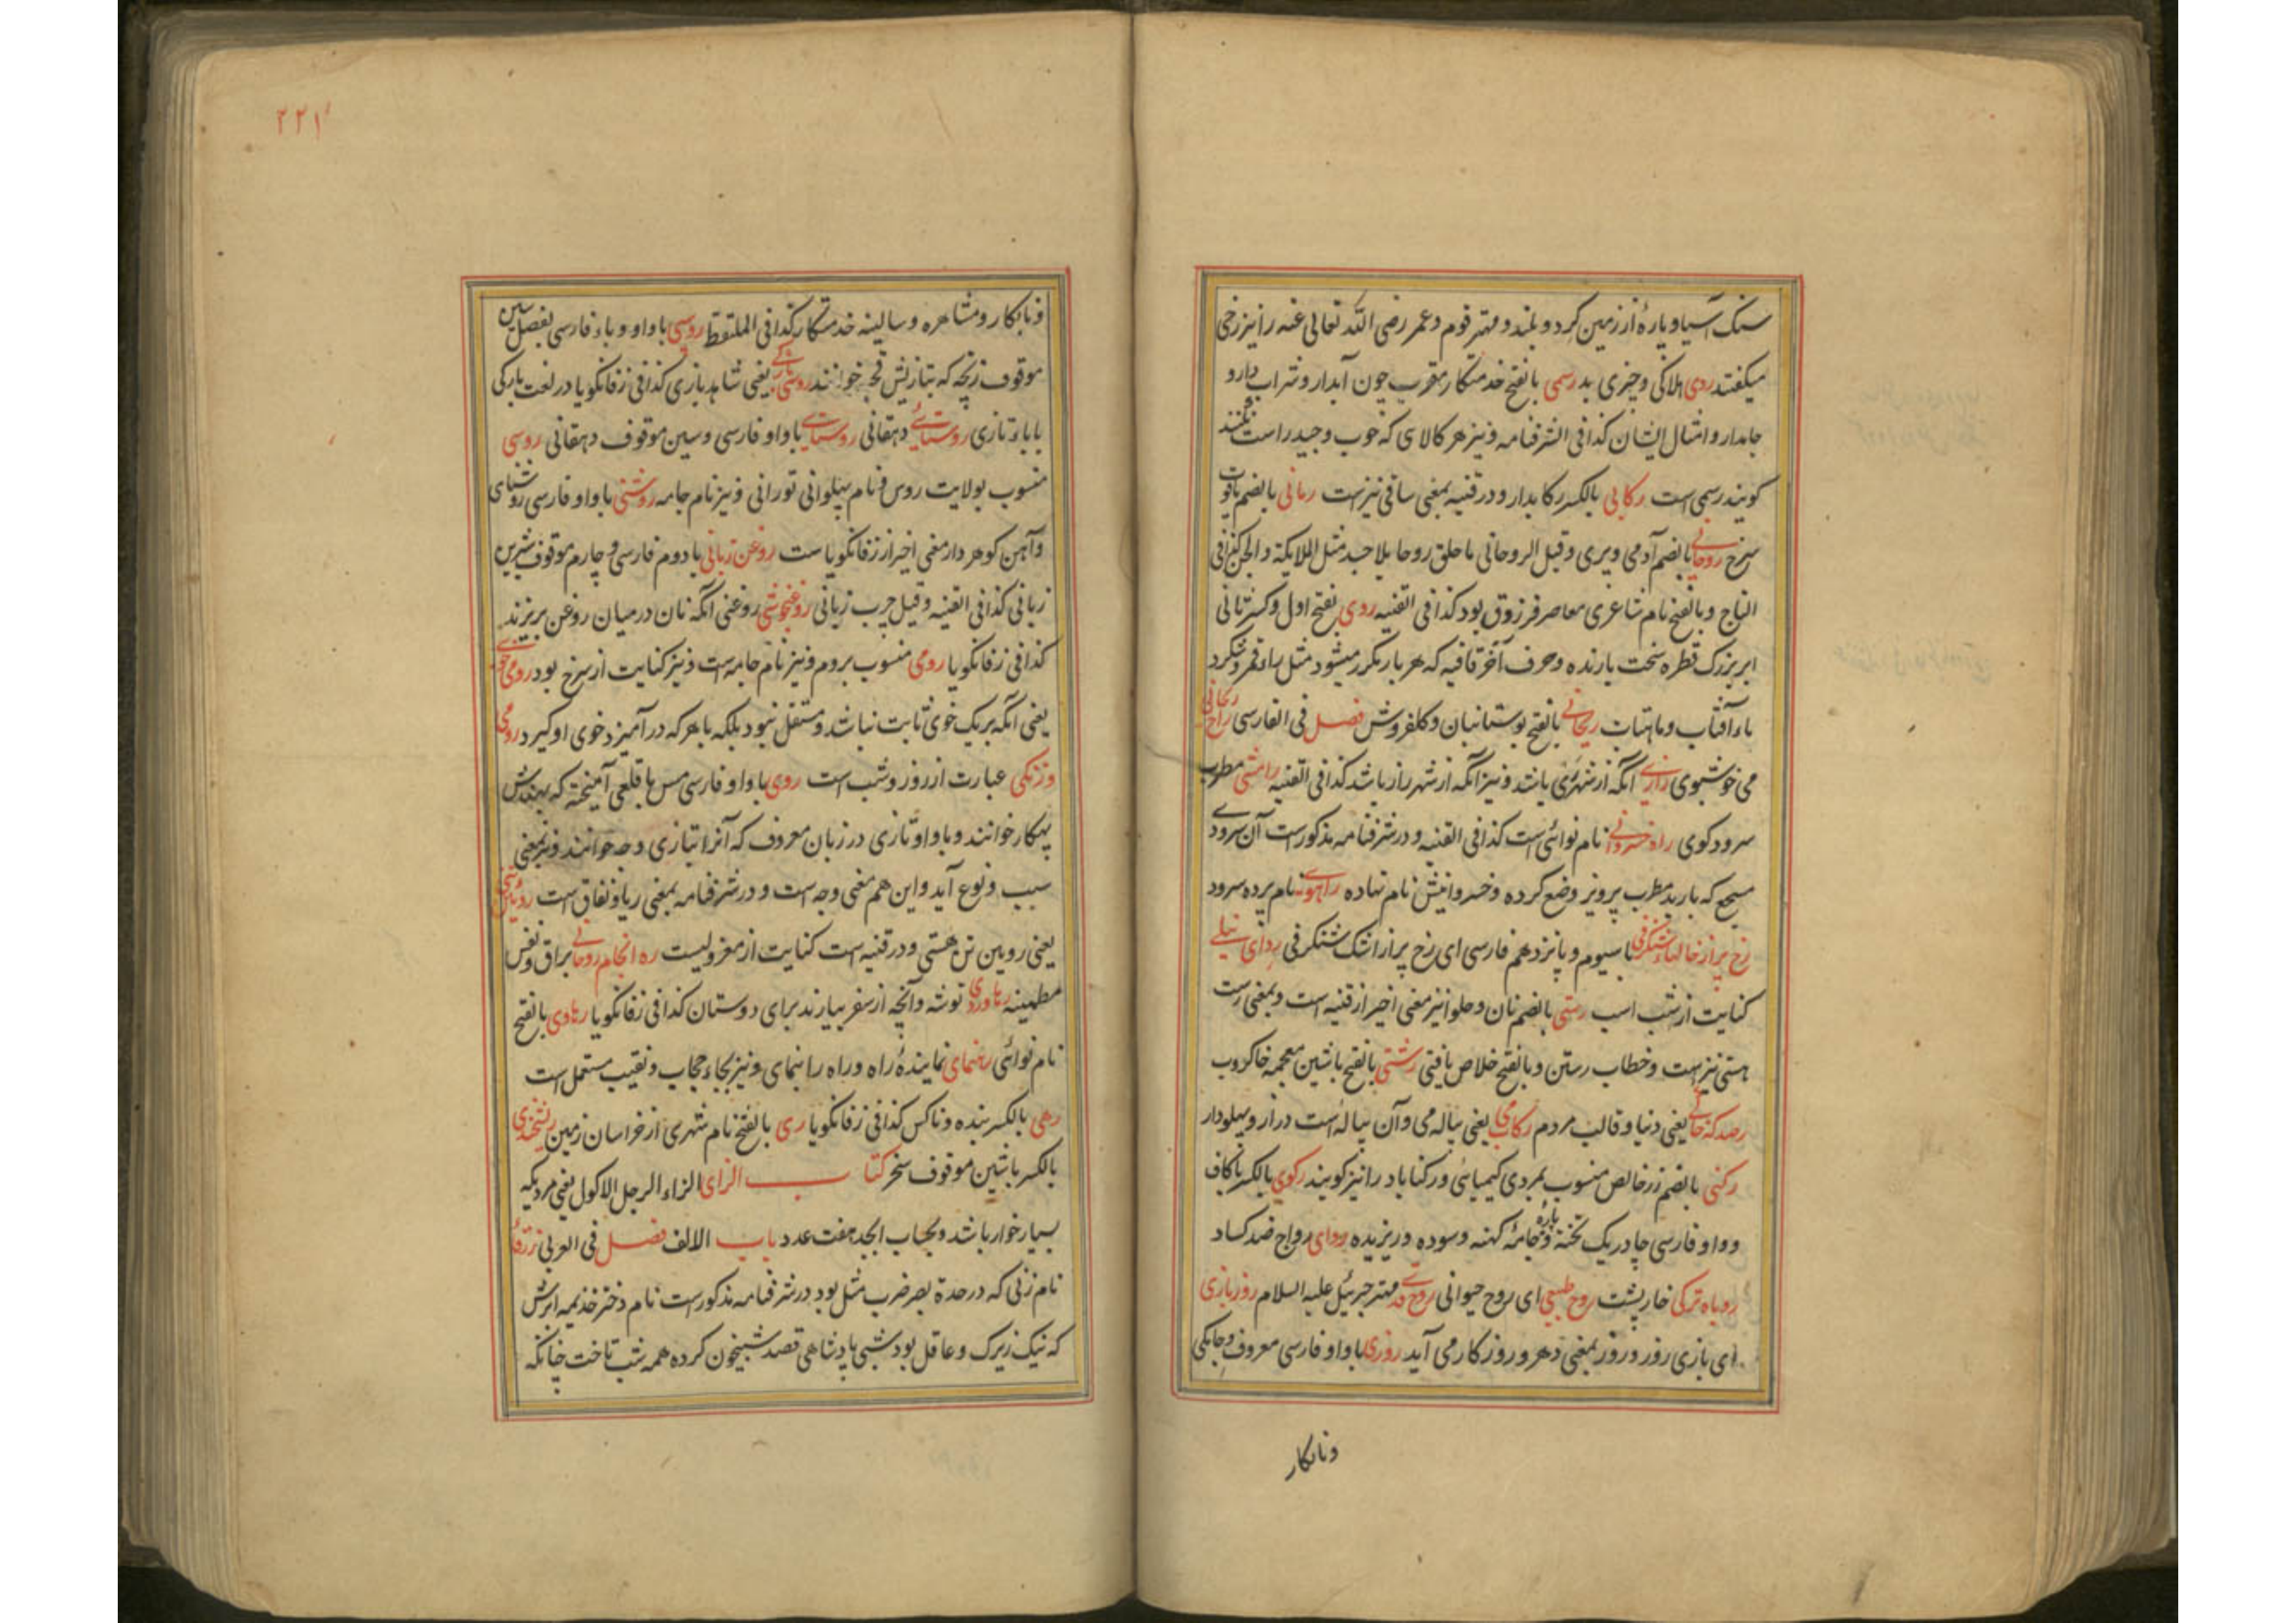 سنک آسیا و پارۀ از زمین کرد و بلند و مهتر قوم و عمر رضی الله تعالی عنه را نیز رخی
میکفتند ردی هلاکی و چیزی بد رسمی بالفتح خدمتکار مقرب چون آبدار و شراب دارو
جامدار و امثال ایشان کذا فی الشرفنامه و نیز هر کالای که خوب و جید راست
کویند رسمی است رکابی بالکسر رکابدار و در قنیه بمعنی ساقی نیزست رمانی بالضم یاقوت
سرخ روحانی بالضم آدمی و پری و قیل الروحانی ما خلق روحا بلا جسد مثل الملایکة و الجن کذا فی
التاج و بالفتح نام شاعری معاصر فرزوق بود کذا فی القنیه روی بفتح اول و کسر ثانی
ابر بزرک قطره سخت بارنده و حرف آخر قافیه که هر بار مکرر میشود مثل راء قمر و شکر
باء آفتاب و ماهتاب ریحانی بالفتح بوستانبان و کلفروش فصل فی الفارسی راح ریحانی
می خوشبوی رازی آنکه از شهر ری باشد و نیز آنکه از شهر راز باشد کذا فی القنیه رامشی مطرب
سرود کوی راه خسروانی نام نوائی است کذا فی القنیه و در شرفنامه مذکورست آن سرودی
مسجع که باربد مطرب پرویز وضع کرده و خسروانیش نام نهاده راهوی نام پرده سرود
رخ پر از خالهاء شنکرفی با سیوم و پانزدهم فارسی ای رخ پر از اشک شنکرفی ردای نیلی
کنایت از شب است رستی بالضم نان و حلوا نیز معنی اخیر از قنیه است و بمعنی رست
هستی نیزست و خطاب رستن و بالفتح خلاص یافتی رشتی بالفتح باشین معجمه خاکروب
رصدکه خاکی یعنی دنیا و قالب مردم رکاب می یعنی پیاله می و آن پیاله است دراز و پهلودار
رکنی بالضم زر خالص منسوب بمردی کیمیائی و رکناباد را نیز کویند رکوی بالکسر با کاف
و واو فارسی چادر یک تخته و پارۀ جامۀ کهنه و سوده و ریزیده روای رواج ضد کساد
روباه ترکی خارپشت روح طبیعی ای روح حیوانی روح قدسی مهتر جبرئیل علیه السلام روز بازی
ای بازی روز و روز بمعنی دهر و روزکار می آید روزی با واو فارسی معروف و جامکی
ونابکار
۲۲۱
ونابکار و مشاهره و سالینه خدمتکار کذا فی الملتقط روسپی با واو و باء فارسی بفصل سین
موقوف زنچه که بتازیش قحبه خوانند روسپی بارکی یعنی شاهد بازی کذا فی زفانکویا در لغت بارکی
با باء تازی روستائی دهقانی روستای با واو فارسی و سین موقوف دهقانی روسی
منسوب بولایت روس و نام پهلوانی تورانی و نیز نام جامه روشنی با واو فارسی روشنای
و آهن کوهردار معنی اخیر از زفانکویاست روغن زبانی با دوم فارسی و چارم موقوف شیرین
زبانی کذا فی القنیه و قیل چرب زبانی روغنجوشی روغنی آنکه نان در میان روغن بریزند
کذا فی زفانکویا رومی منسوب بروم و نیز نام جامه است و نیز کنایت از سرخ بود رومی خوی
یعنی آنکه بریک خوی ثابت نباشد و مستقل نبود بلکه با هر که درآمیزد خوی او کیرد رومی
و زنکی عبارت از روز و شب است روی با واو فارسی مس با قلعی آمیخته که بهندش
پهکار خوانند و با واو تازی در زبان معروف که آنرا بتازی وجه خوانند و نیز بمعنی
سبب و نوع آید و این هم معنی وجه است و در شرفنامه بمعنی ریا و نفاق است
یعنی رویین تن هستی و در قنیه است کنایت از معزولیست ره انجام روحانی براق و نفس
مطمئنه ره آوردی توشه و آنچه از سفر بیارند برای دوستان کذا فی زفانکویا رهاوی بالفتح
نام نوائی رهنمای نمایندۀ راه و راه را بنمای و نیز بجاء حجاب و نقیب مستعمل است
رهی بالکسر بنده و ناکس کذا فی زفانکویا ری بالفتح نام شهری از خراسان زمین ریشخندی
بالکسر باشین موقوف سخر کتاب الزای الزاء الرجل الاکول یعنی مردیکه
بسیار خوار باشد و بحساب ابجد هفت عدد باب الالف فصل فی العربی زرقا
نام زنی که در حدة بصر ضرب مثل بود در شرفنامه مذکورست نام دختر خذیمه ابرش
که نیک زیرک و عاقل بود شبی پادشاهی قصد شبیخون کرده همه شب تاخت چنانکه